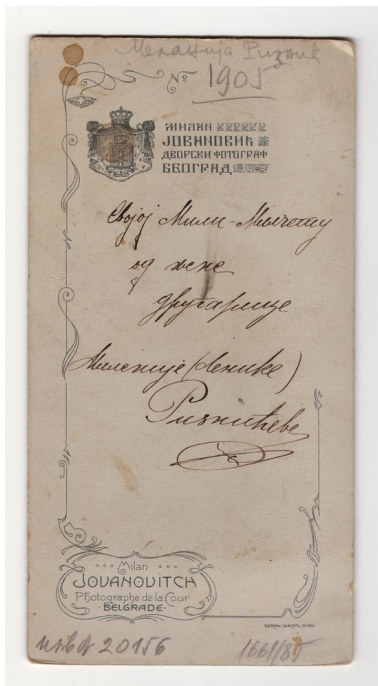 Меланија Ризнић
№ 1905
МИЛАН
ЈОВАНОВИЋ
ДВОРСКИ ФОТОГРАФ
БЕОГРАД
Својој Мили-
од
другарице
Ризнићеве
Milan
JOVANOVITCH
Photographe de la Cour
BELGRADE
20156
1661/85